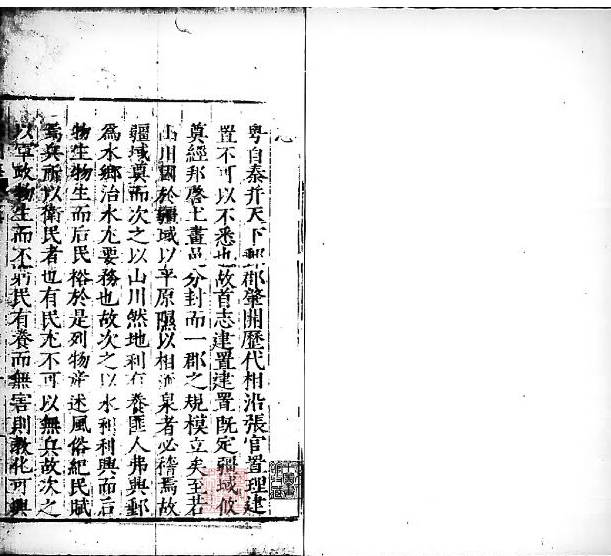 粵自秦并天下郵郡肇開歷代相沿張官置理建
置不可以不悉也故首志建置建置既定疆域攸
奠經邦啓土畫邑分封而一郡之規模立矣至若
山川國於疆域以平原隰以相流泉者必稽焉故
疆域奠而次之以山川然地利有養匪人弗興郵
為水鄉治水尤要務也故次之以水利利興而后
物生物生而后民裕於是列物産述風俗紀民賦
焉兵所以衛民者也有民尤不可以無兵故次之
以軍政物生而不窮民有養而無害則教化可興